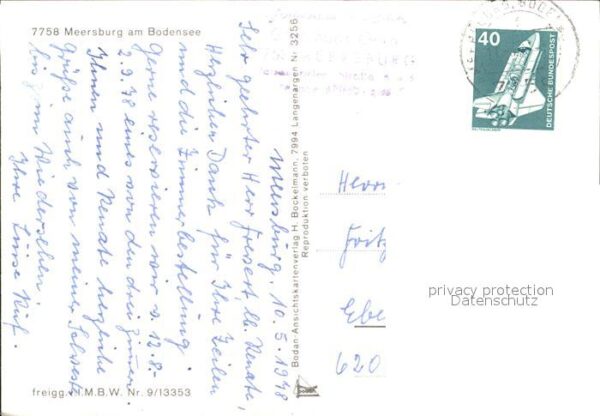 7758 Meersburg am Bodensee
Meersburg, 10.5.1978
Sehr geehrter Herr Frevert, lb. Renate,
Herzlichen Dank für Ihre Zeilen
und die Zimmerbestellung.
Gerne reservieren wir v. 12.8.-
2.9.78 eines von den drei Zimmern.
Ihnen und Renate herzliche
Grüße auch von meiner Schwester
bis zum Wiedersehen
Ihre Luise
freigg. I.M.B.W. Nr. 9/13353
Bodan-Ansichtskartenverlag H. Bockelmann, 7994 Langenargen Nr. 3256
Reproduktion verboten
40
DEUTSCHE BUNDESPOST
Herrn
Fritz
Ebe
620
privacy protection
Datenschutz